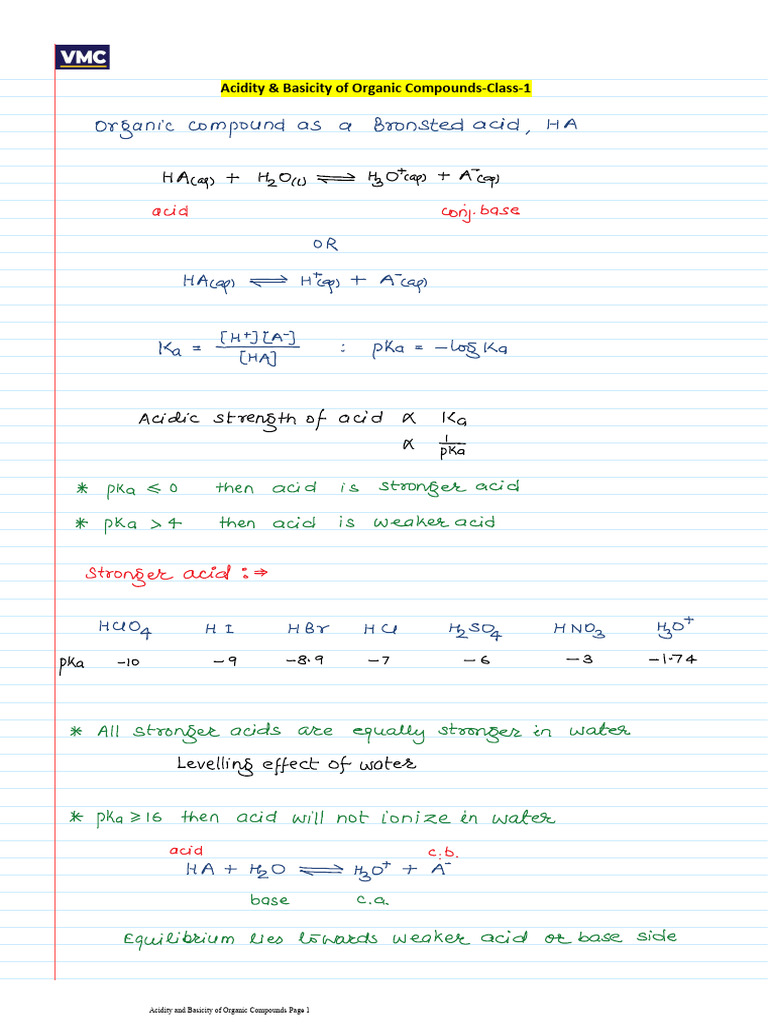 VMC
Acidity & Basicity of Organic Compounds-Class-1
Organic compound as a Bronsted acid, HA
HA(aq) + H₂O(l) ⇌ H₃O⁺(aq) + A⁻(aq)
acid conj. base
OR
HA(aq) ⇌ H⁺(aq) + A⁻(aq)
Ka = [H⁺][A⁻] / [HA] : pKa = -log Ka
Acidic strength of acid ∝ Ka
∝ 1/pKa
* pKa ≤ 0 then acid is stronger acid
* pKa > 4 then acid is weaker acid
Stronger acid :⇒
HClO₄ HI HBr HCl H₂SO₄ HNO₃ H₃O⁺
pKa -10 -9 -8.9 -7 -6 -3 -1.74
* All stronger acids are equally stronger in water
Levelling effect of water
* pKa ≥ 16 then acid will not ionize in water
acid c.b.
HA + H₂O ⇌ H₃O⁺ + A⁻
base c.a.
Equilibrium lies towards weaker acid or base side
Acidity and Basicity of Organic Compounds Page 1